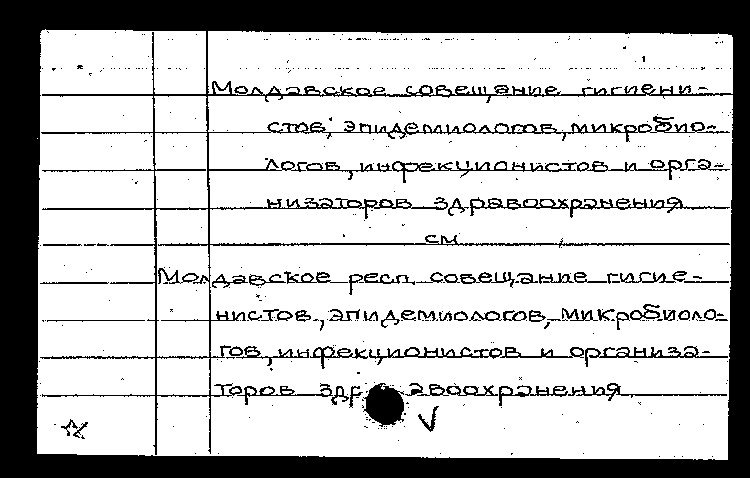 Молдавское совещание гигиени-
стов, эпидемиологов, микробио-
логов, инфекционистов и орга-
низаторов здравоохранения
см
Молдавское респ. совещание гигие-
нистов, эпидемиологов, микробиоло-
гов, инфекционистов и организа-
торов здравоохранения